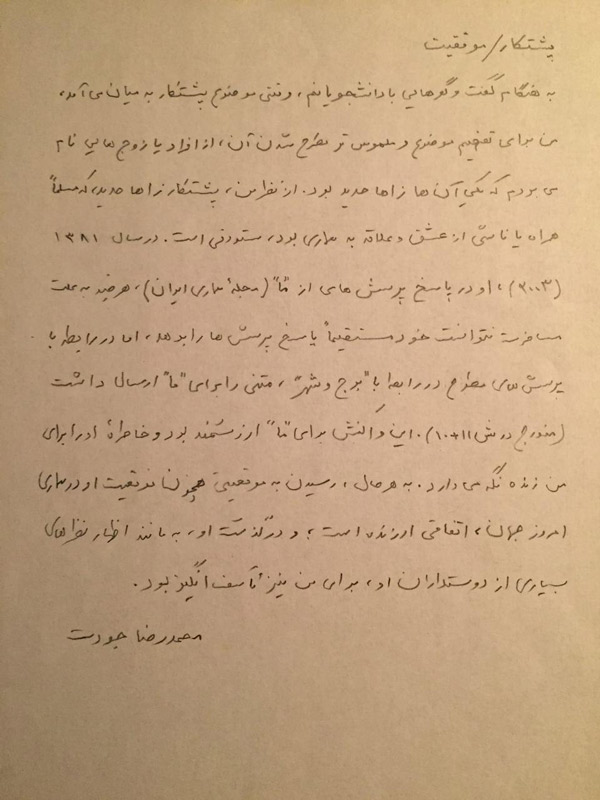 پشتکار/موفقیت
به هنگام گفت و گوهایی با دانشجویانم، وقتی موضوع پشتکار به میان می آمد،
من برای تفخیم موضوع و ملموس تر مطرح شدن آن، از افراد یا زوج هایی نام
می بردم که یکی آن ها زاها حدید بود. از نظر من، پشتکار زاها حدید، که مسلماً
همراه یا ناشی از عشق و علاقه به معماری بود، ستودنی است. در سال ۱۳۸۱
(۲۰۰۳)، او در پاسخ پرسش هایی از "ما" (مجلهٔ معماری ایران)، هرچند به علت
مسافرت نتوانست خود مستقیماً پاسخ پرسش ها را بدهد، اما در رابطه با
پرسش های مطرح در رابطه با "برج و شهر"، متنی را برای "ما" ارسال داشت
(مندرج در ش ۱۱+۱۰). این واکنش برای "ما" ارزشمند بود و خاطرهٔ او را برای
من زنده نگه می دارد. به هر حال، رسیدن به موقعیتی همچون موقعیت او در معماری
امروز جهان، اتفاقی ارزنده است؛ و درگذشت او، به مانند اظهار نظرهای
بسیاری از دوستداران او، برای من نیز تأسف انگیز بود.
محمدرضا جودت